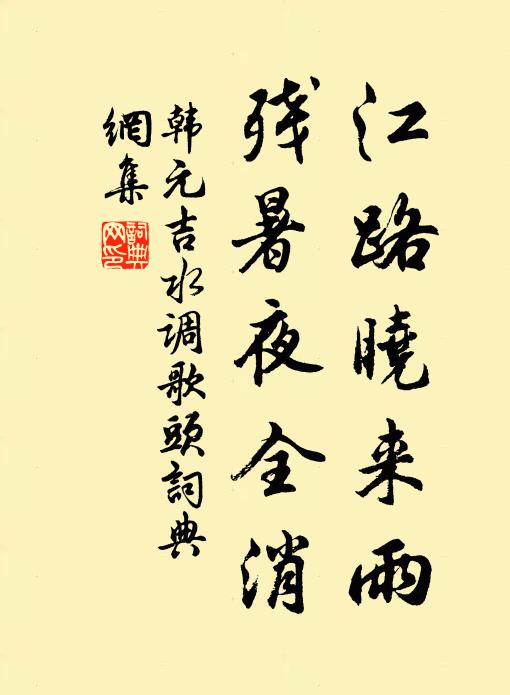 江路曉来雨
残暑夜全消
韩元吉水调歌頭詞典
網集
詞典网印